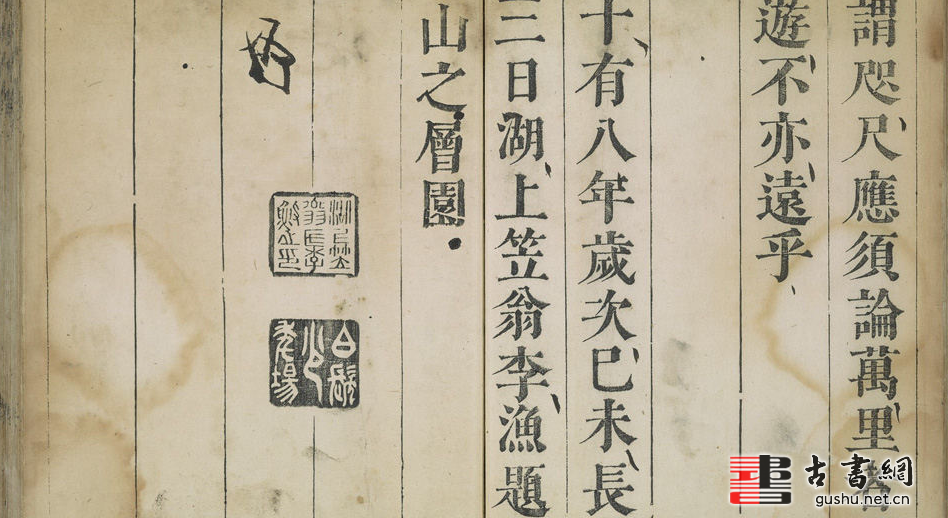 謂咫尺應須論萬里者
遊不亦遠乎
十有八年歲次巳未長
三日湖上笠翁李漁題
山之層園
古書網
gushu.net.cn